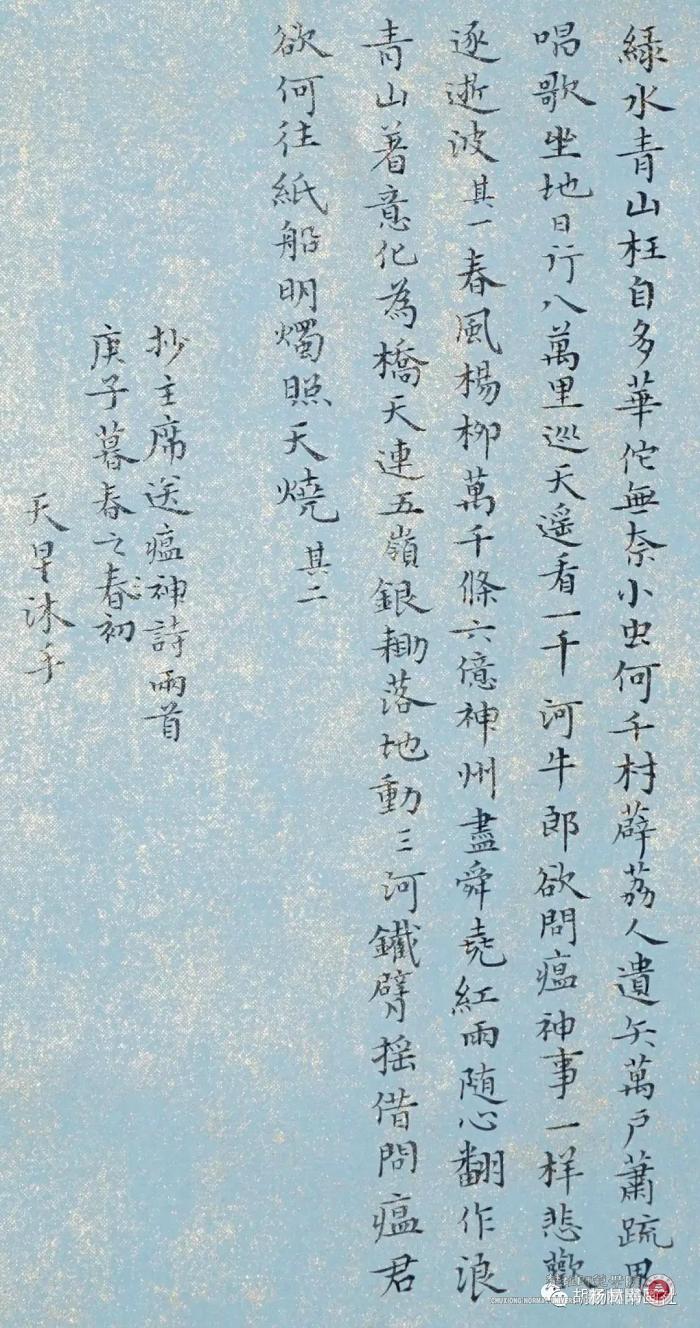 綠水青山枉自多華佗無奈小虫何千村薜荔人遺矢萬戶蕭疏鬼
唱歌坐地日行八萬里巡天遥看一千河牛郎欲問瘟神事一样悲歡
逐逝波其一春風楊柳萬千條六億神州盡舜堯紅雨随心翻作浪
青山著意化為橋天連五嶺銀耡落地動三河鐵臂摇借問瘟君
欲何往紙船明燭照天燒其二
抄主席送瘟神詩兩首
庚子暮春之春初
沐手
CHUXIONG NORMAL UNIVERSITY